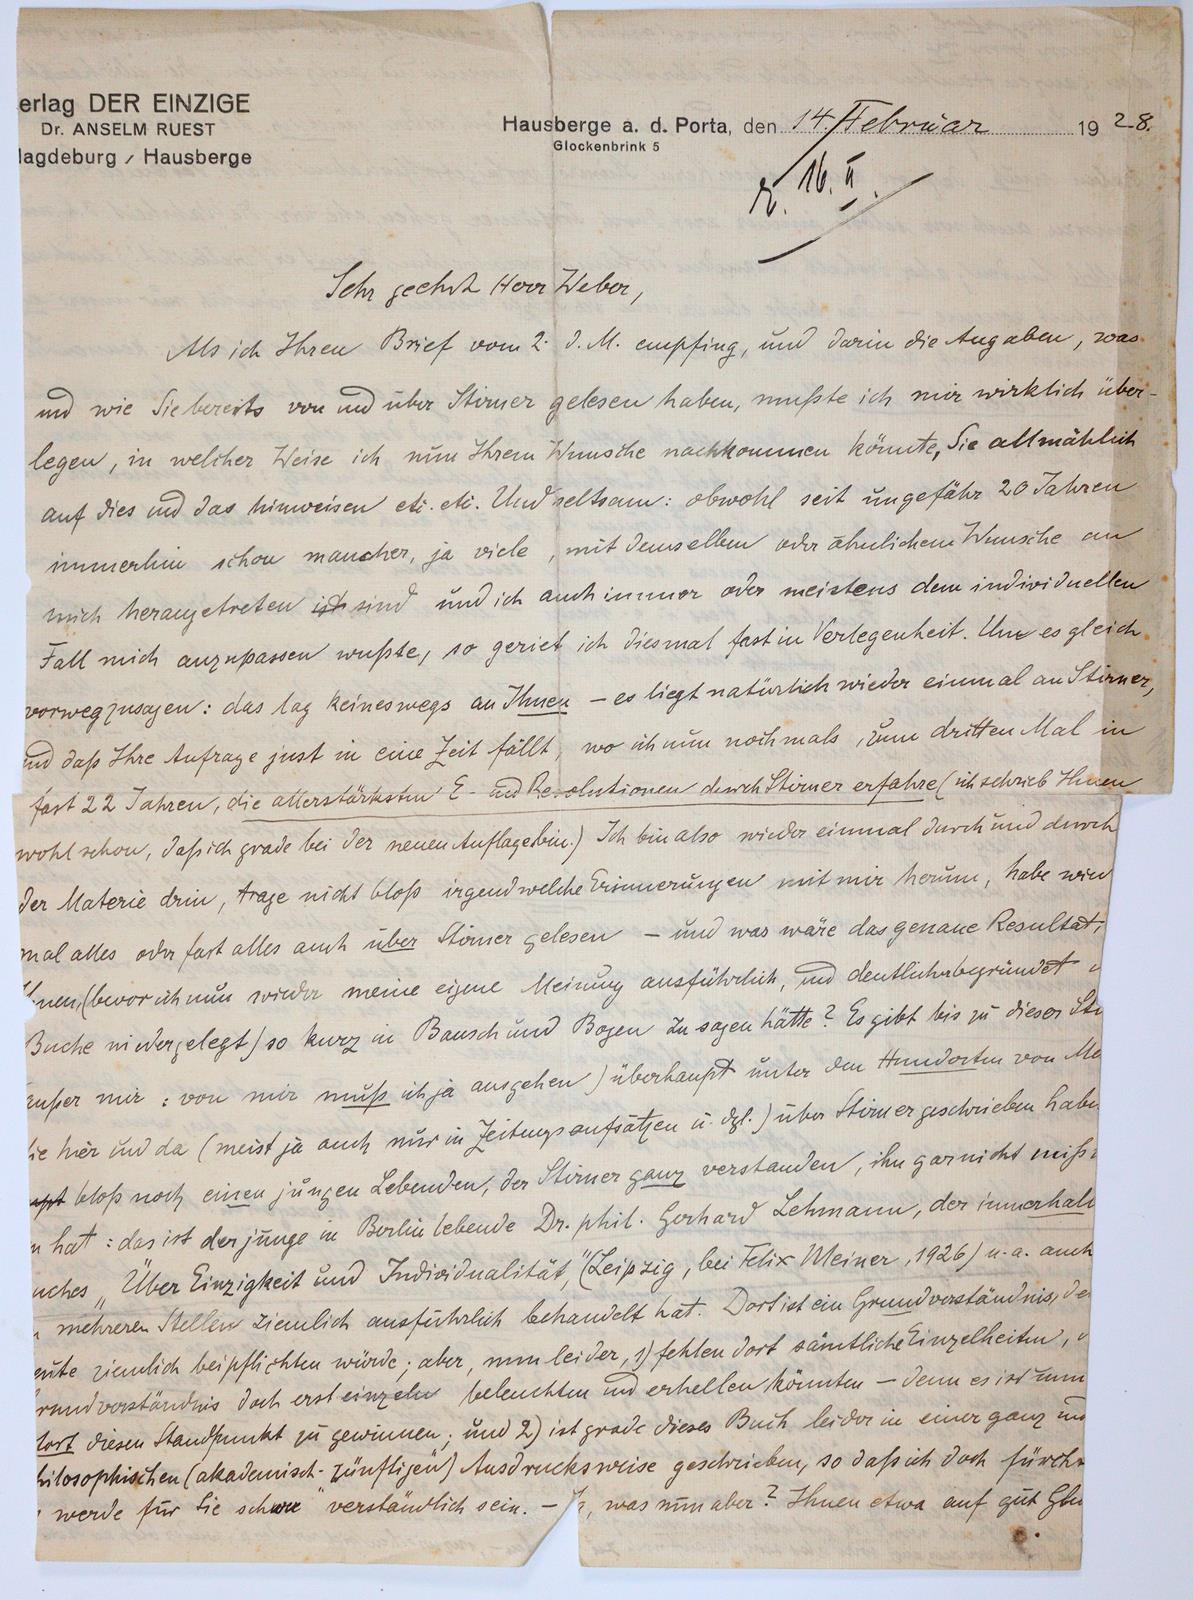 erlag DER EINZIGE
Dr. ANSELM RUEST
Magdeburg / Hausberge
Hausberge a. d. Porta, den 14. Februar 1928.
Glockenbrink 5
16. II.
Sehr geehrt Herr Weber,
Als ich Ihren Brief vom 2. d. M. empfing, und darin die Angaben, was
und wie Sie bereits von und über Stirner gelesen haben, mußte ich mir wirklich über-
legen, in welcher Weise ich nun Ihrem Wunsche nachkommen könnte, Sie allmählich
auf dies und das hinweisen etc. etc. Und seltsam: obwohl seit ungefähr 20 Jahren
immerhin schon mancher, ja viele, mit demselben oder ähnlichem Wunsche an
mich herangetreten ist sind und ich auch immer oder meistens dem individuellen
Fall mich anzupassen wußte, so geriet ich diesmal fast in Verlegenheit. Um es gleich
vorwegzusagen: das lag keineswegs an Ihnen – es liegt natürlich wieder einmal an Stirner,
und daß Ihre Anfrage just in eine Zeit fällt, wo ich nun nochmals, zum dritten Mal in
fast 22 Jahren, die allerstärksten E- und Revolutionen durch Stirner erfahre (ich schrieb Ihnen
wohl schon, daß ich grade bei der neuen Auflage bin.) Ich bin also wieder einmal durch und durch
der Materie drin, trage nicht bloß irgendwelche Erinnerungen mit mir herum, habe wied
mal alles oder fast alles auch über Stirner gelesen – und was wäre das genaue Resultat,
Ihnen, (bevor ich nun wieder meine eigene Meinung ausführlich, und deutlicher begründet
Buche niedergelegt) so kurz in Bausch und Bogen zu sagen hätte? Es gibt bis zu dieser Stu
außer mir: von mir muß ich ja ausgehen) überhaupt unter den Hunderten von Me
die hier und da (meist ja auch nur in Zeitungsaufsätzen u. dgl.) über Stirner geschrieben habe
bloß noch einen jungen Lebenden, der Stirner ganz verstanden, ihn gar nicht mißv
n hat: das ist der junge in Berlin lebende Dr. phil. Gerhard Lehmann, der innerhalb
uches „Über Einzigkeit und Individualität," (Leipzig, bei Felix Meiner, 1926) u. a. auch
mehreren Stellen ziemlich ausführlich behandelt hat. Dort ist ein Grundverständnis, de
eute ziemlich beipflichten würde; aber, nun leider, 1) fehlen dort sämtliche Einzelheiten,
rundverständnis doch erst einzeln beleuchten und erhellen könnten – denn es ist nun
fort diesen Standpunkt zu gewinnen; und 2) ist grade dieses Buch leider in einer ganz und
hilosophischen (akademisch-zünftigen) Ausdrucksweise geschrieben, so daß ich doch fürch
werde für Sie schwer verständlich sein. – Ja, was nun aber? Ihnen etwa auf gut Glü